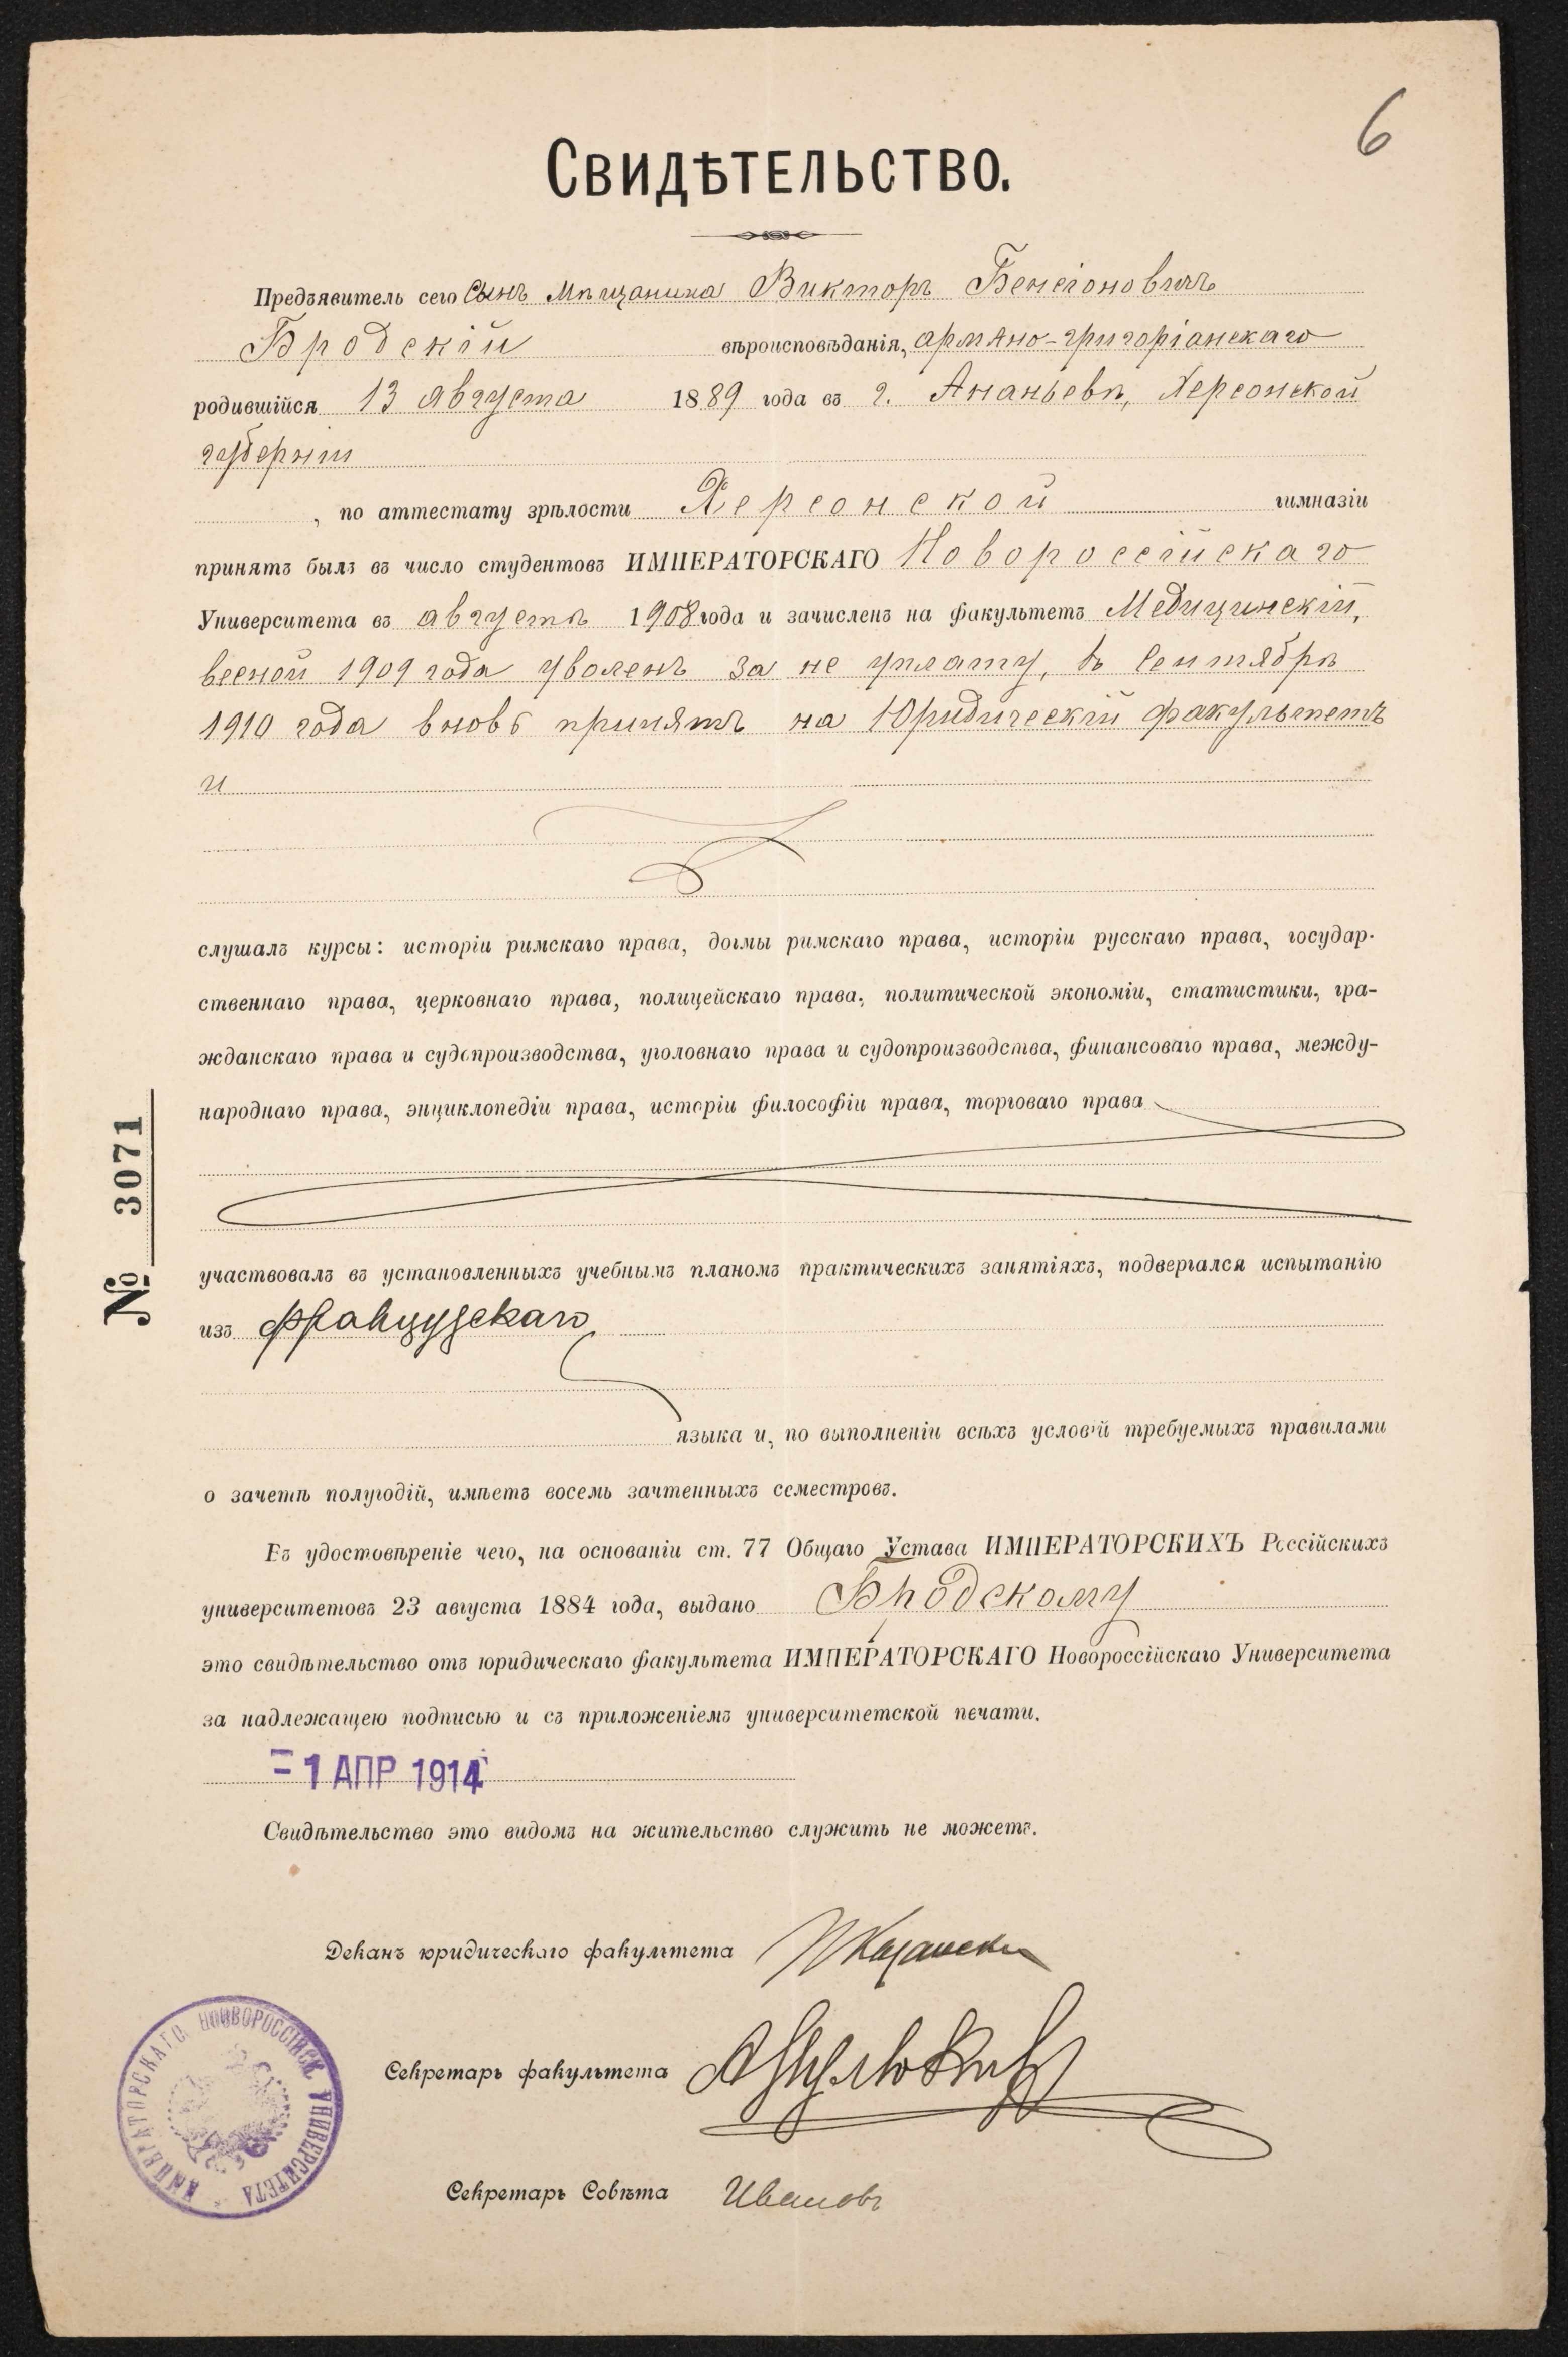 6
Свидѣтельство.
Предъявитель сего сынъ мѣщанина Викторъ Бенсіоновичъ
Бродскій вѣроисповѣданія, армяно-григоріанскаго
родившійся 13 августа 1889 года въ г. Ананьевѣ, Херсонской
губерніи
, по аттестату зрѣлости Херсонской гимназіи
принятъ былъ въ число студентовъ ИМПЕРАТОРСКАГО Новороссійскаго
Университета въ августѣ 1908 года и зачисленъ на факультетъ Медицинскій,
весной 1909 года уволенъ за не уплату, въ Сентябрѣ
1910 года вновь принятъ на Юридическій факультетъ
и
слушалъ курсы: исторіи римскаго права, догмы римскаго права, исторіи русскаго права, государ-
ственнаго права, церковнаго права, полицейскаго права, политической экономіи, статистики, гра-
жданскаго права и судопроизводства, уголовнаго права и судопроизводства, финансоваго права, между-
народнаго права, энциклопедіи права, исторіи философіи права, торговаго права
№ 3071
участвовалъ въ установленныхъ учебнымъ планомъ практическихъ занятіяхъ, подвергался испытанію
изъ французскаго
языка и, по выполненіи всѣхъ условій требуемыхъ правилами
о зачетѣ полугодій, имѣетъ восемь зачтенныхъ семестровъ.
Въ удостовѣреніе чего, на основаніи ст. 77 Общаго Устава ИМПЕРАТОРСКИХЪ Россійскихъ
университетовъ 23 августа 1884 года, выдано Бродскому
это свидѣтельство отъ юридическаго факультета ИМПЕРАТОРСКАГО Новороссійскаго Университета
за надлежащею подписью и съ приложеніемъ университетской печати.
-1 АПР 1914
Свидѣтельство это видомъ на жительство служить не можетъ.
Деканъ юридическаго факультета П Казанскі
Секретарь факультета
Секретарь Совѣта Ивановъ
ИМПЕРАТОРСКАГО НОВОРОССІЙСК. УНИВЕРСИТЕТА